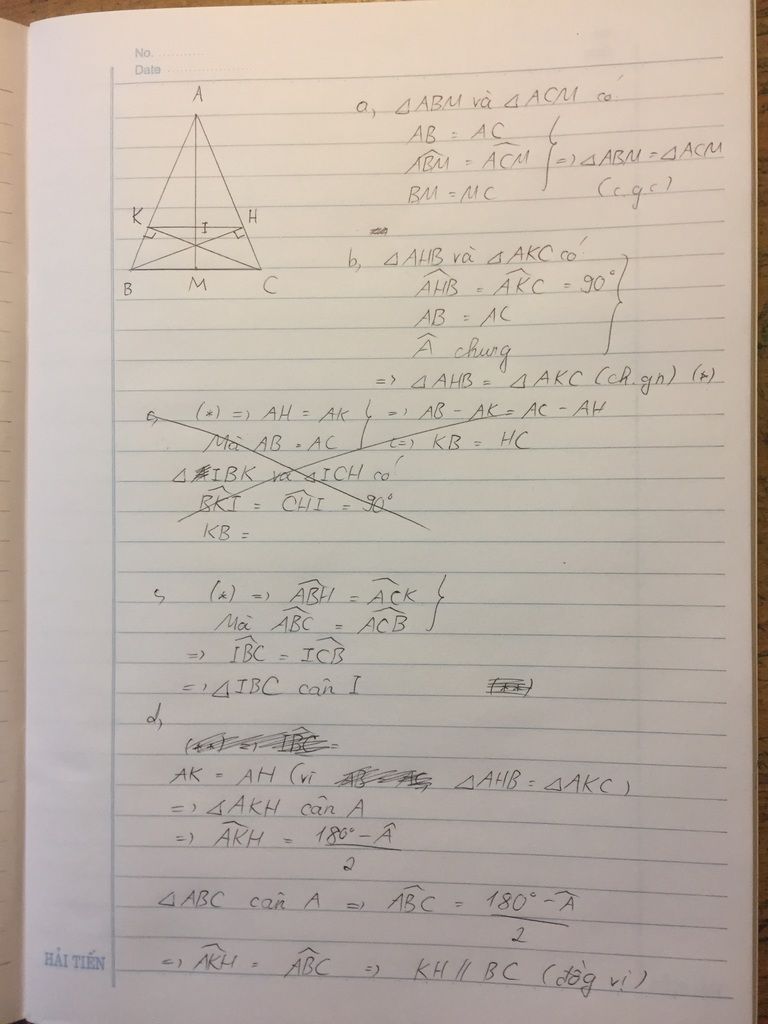 No. ............
Date ....................
A
K
I
H
B
M
C
a, △ABM và △ACM có
AB = AC
ABM̂ = ACM̂ } => △ABM = △ACM
BM = MC (c.g.c)
b, △AHB và △AKC có
AHB̂ = AKĈ = 90°
AB = AC
Â chung
=> △AHB = △AKC (ch.gn) (*)
c, (*) => AH = AK } => AB - AK = AC - AH
Mà AB = AC (=) KB = HC
△IBK và △ICH có
BKÎ = CHÎ = 90°
KB =
c, (*) => ABĤ = ACK̂
Mà ABĈ = ACB̂ }
=> IBĈ = ICB̂
=> △IBC cân I
(**)
d,
(**) => IBĈ =
AK = AH (vì AB = AC, △AHB = △AKC)
=> △AKH cân A
=> AKĤ = 180° - Â
2
△ABC cân A => ABĈ = 180° - Â
2
=> AKĤ = ABĈ => KH // BC (đồg vị)
HẢI TIẾN